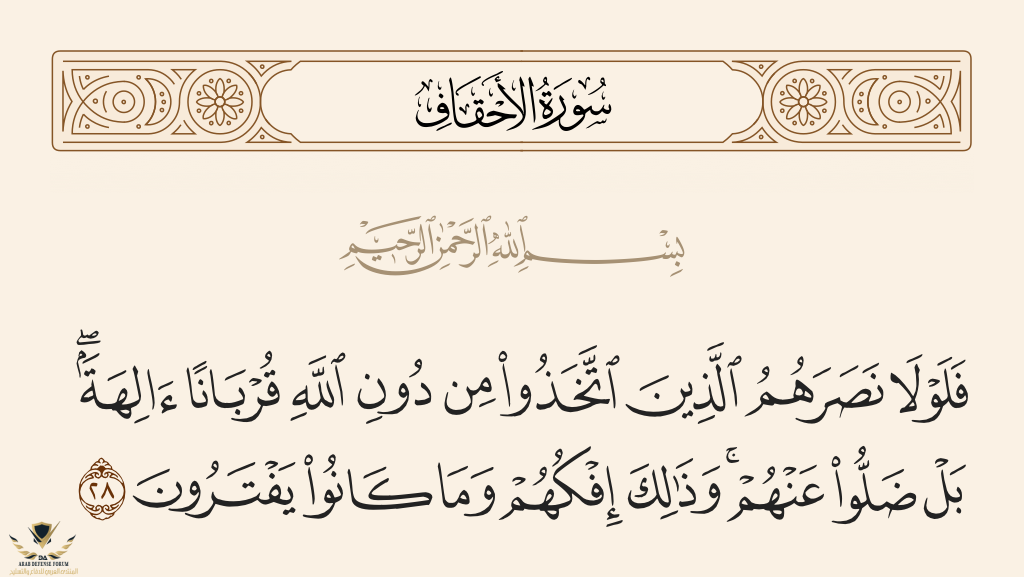 سُورَةُ الأَحْقَافِ
بِسْمِ ٱللَّهِ ٱلرَّحْمَٰنِ ٱلرَّحِيمِ
فَلَوْلَا نَصَرَهُمُ ٱلَّذِينَ ٱتَّخَذُوا۟ مِن دُونِ ٱللَّهِ قُرْبَانًا ءَالِهَةًۢ ۖ
بَلْ ضَلُّوا۟ عَنْهُمْ ۚ وَذَٰلِكَ إِفْكُهُمْ وَمَا كَانُوا۟ يَفْتَرُونَ ٢٨
DA
ARAB DEFENSE FORUM